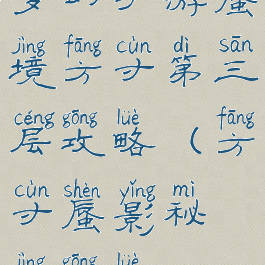 jìng fāng cùn dì sān
境方寸第三
céng gōng lüè fāng
层攻略(方
cùn shèn yǐng mì
寸蜃影秘
jìng gōng lüè